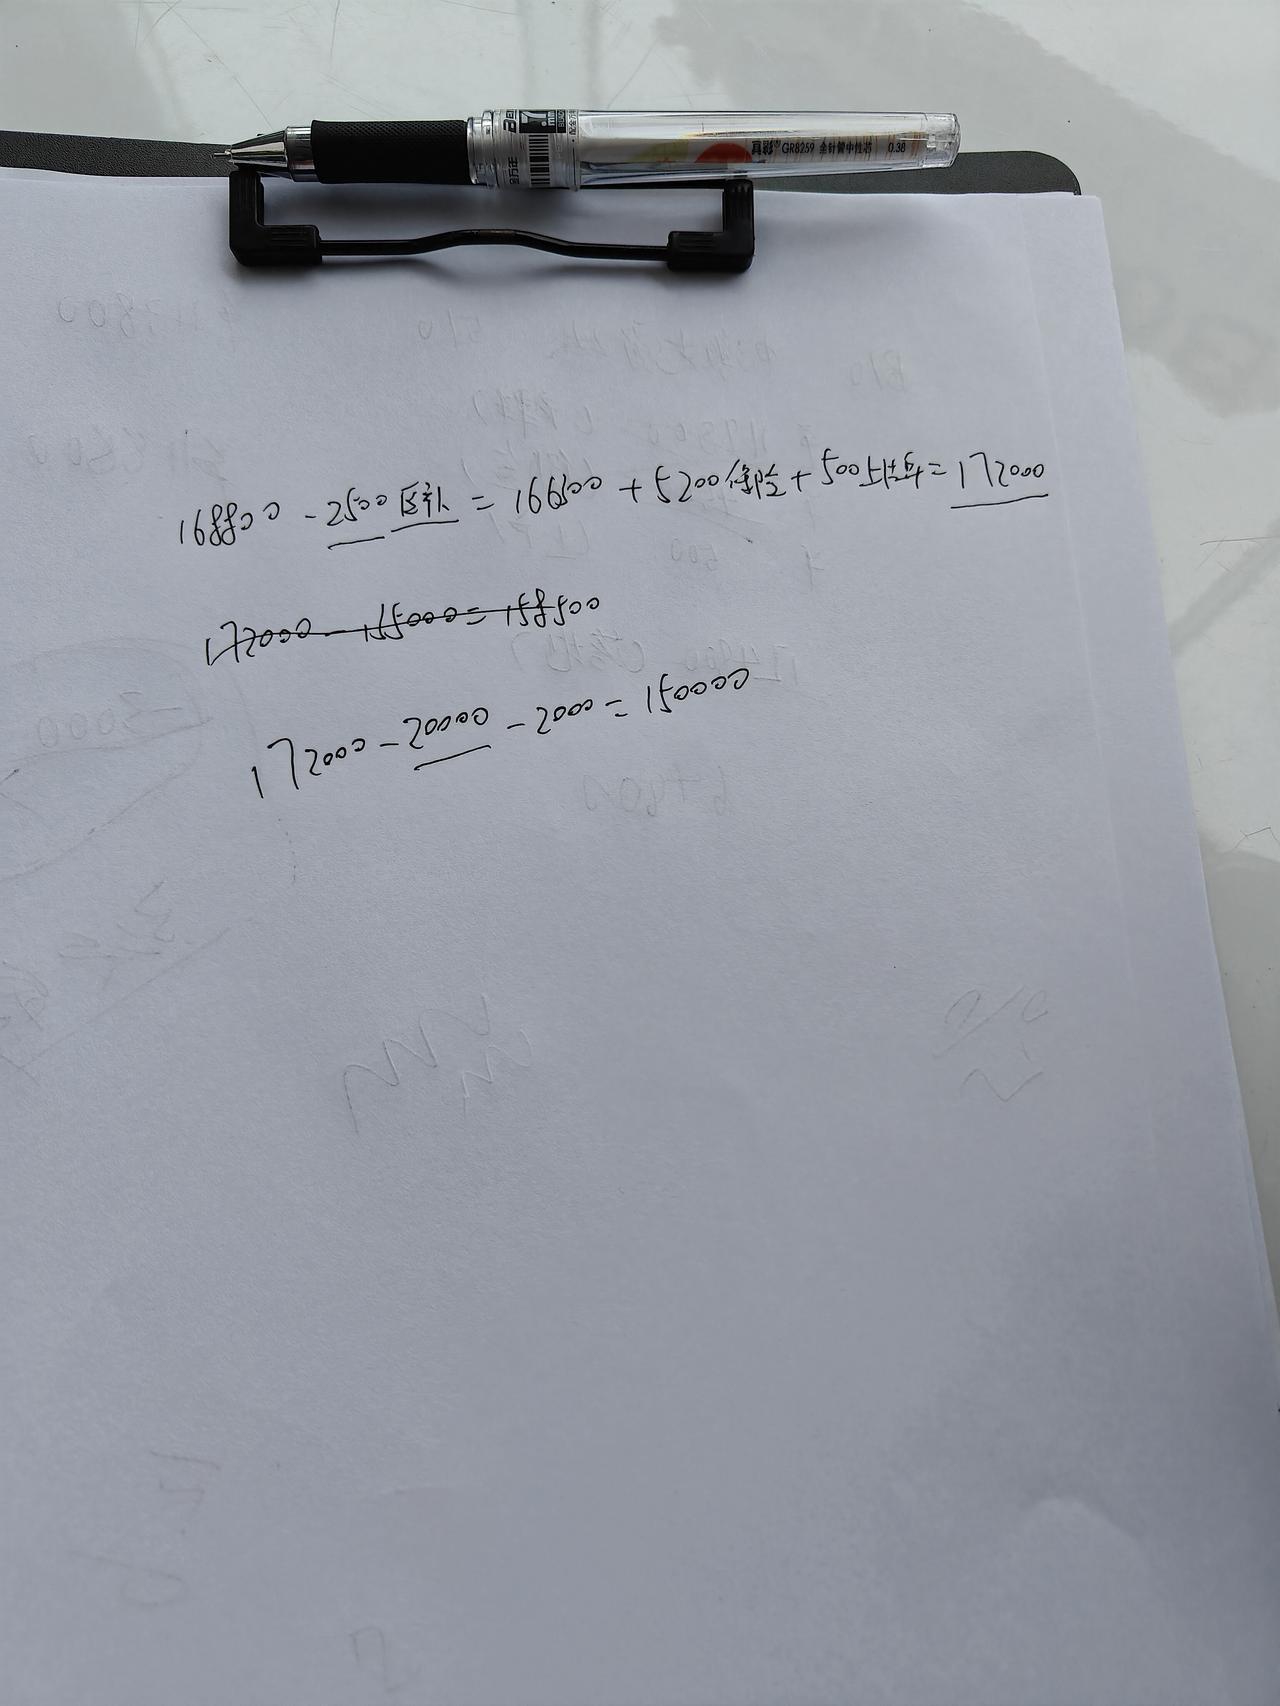 真彩 GR8259 全针管中性芯 0.38
168800 - 2500 区补 = 166300 + 5200保险 + 500上牌 = 172000
172000 - 155000 = 158500
172000 - 20000 - 2000 = 150000